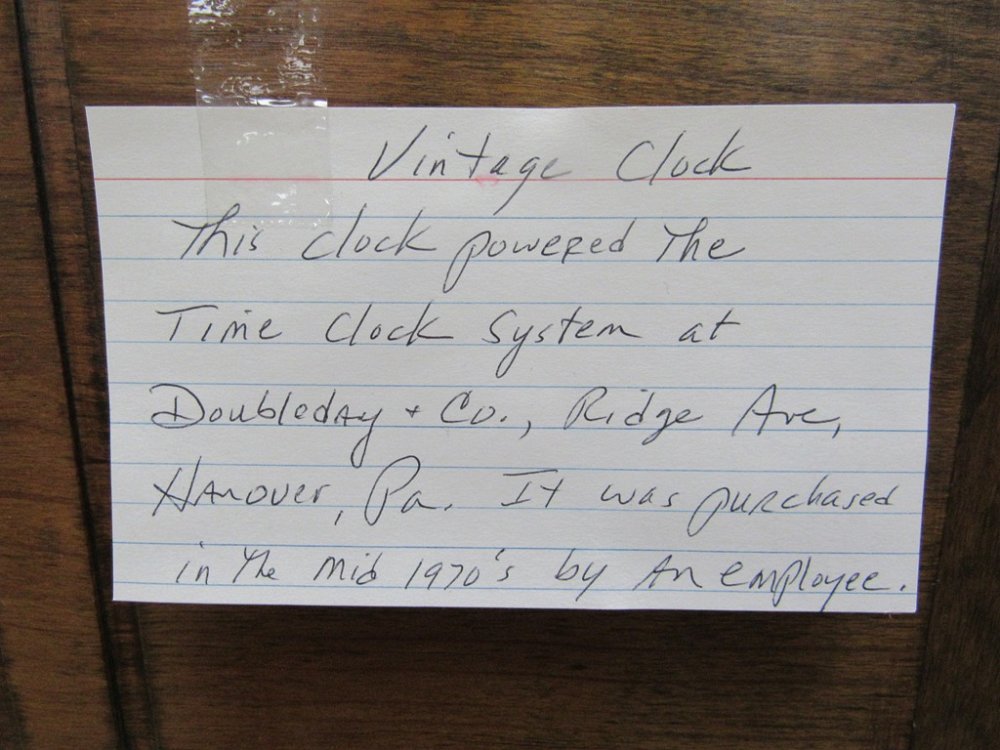 Vintage Clock
This clock powered The
Time Clock System at
Doubleday + Co., Ridge Ave,
Hanover, Pa. It was purchased
in The mid 1970's by An employee.